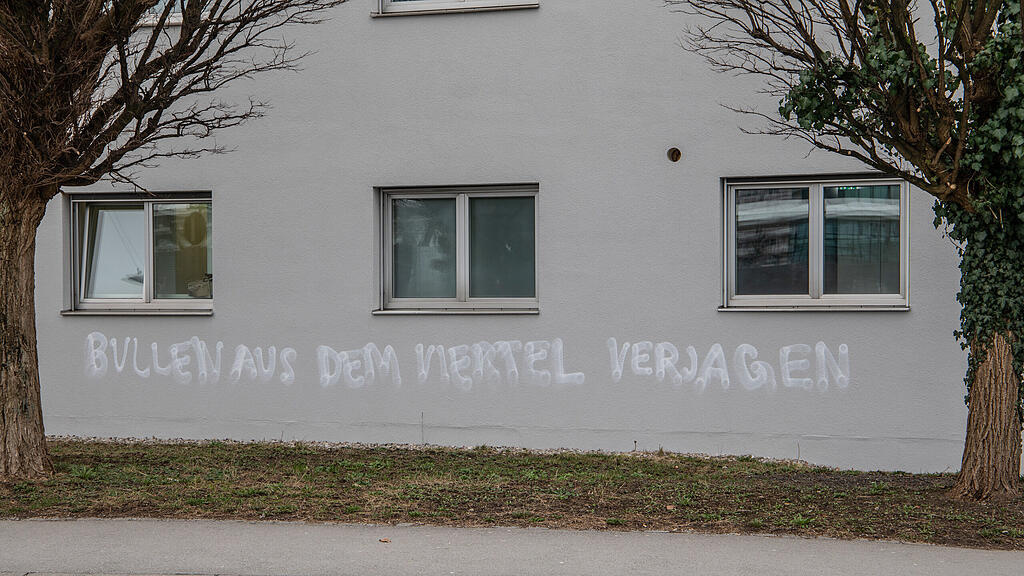 BULLEN AUS DEM VIERTEL VERJAGEN